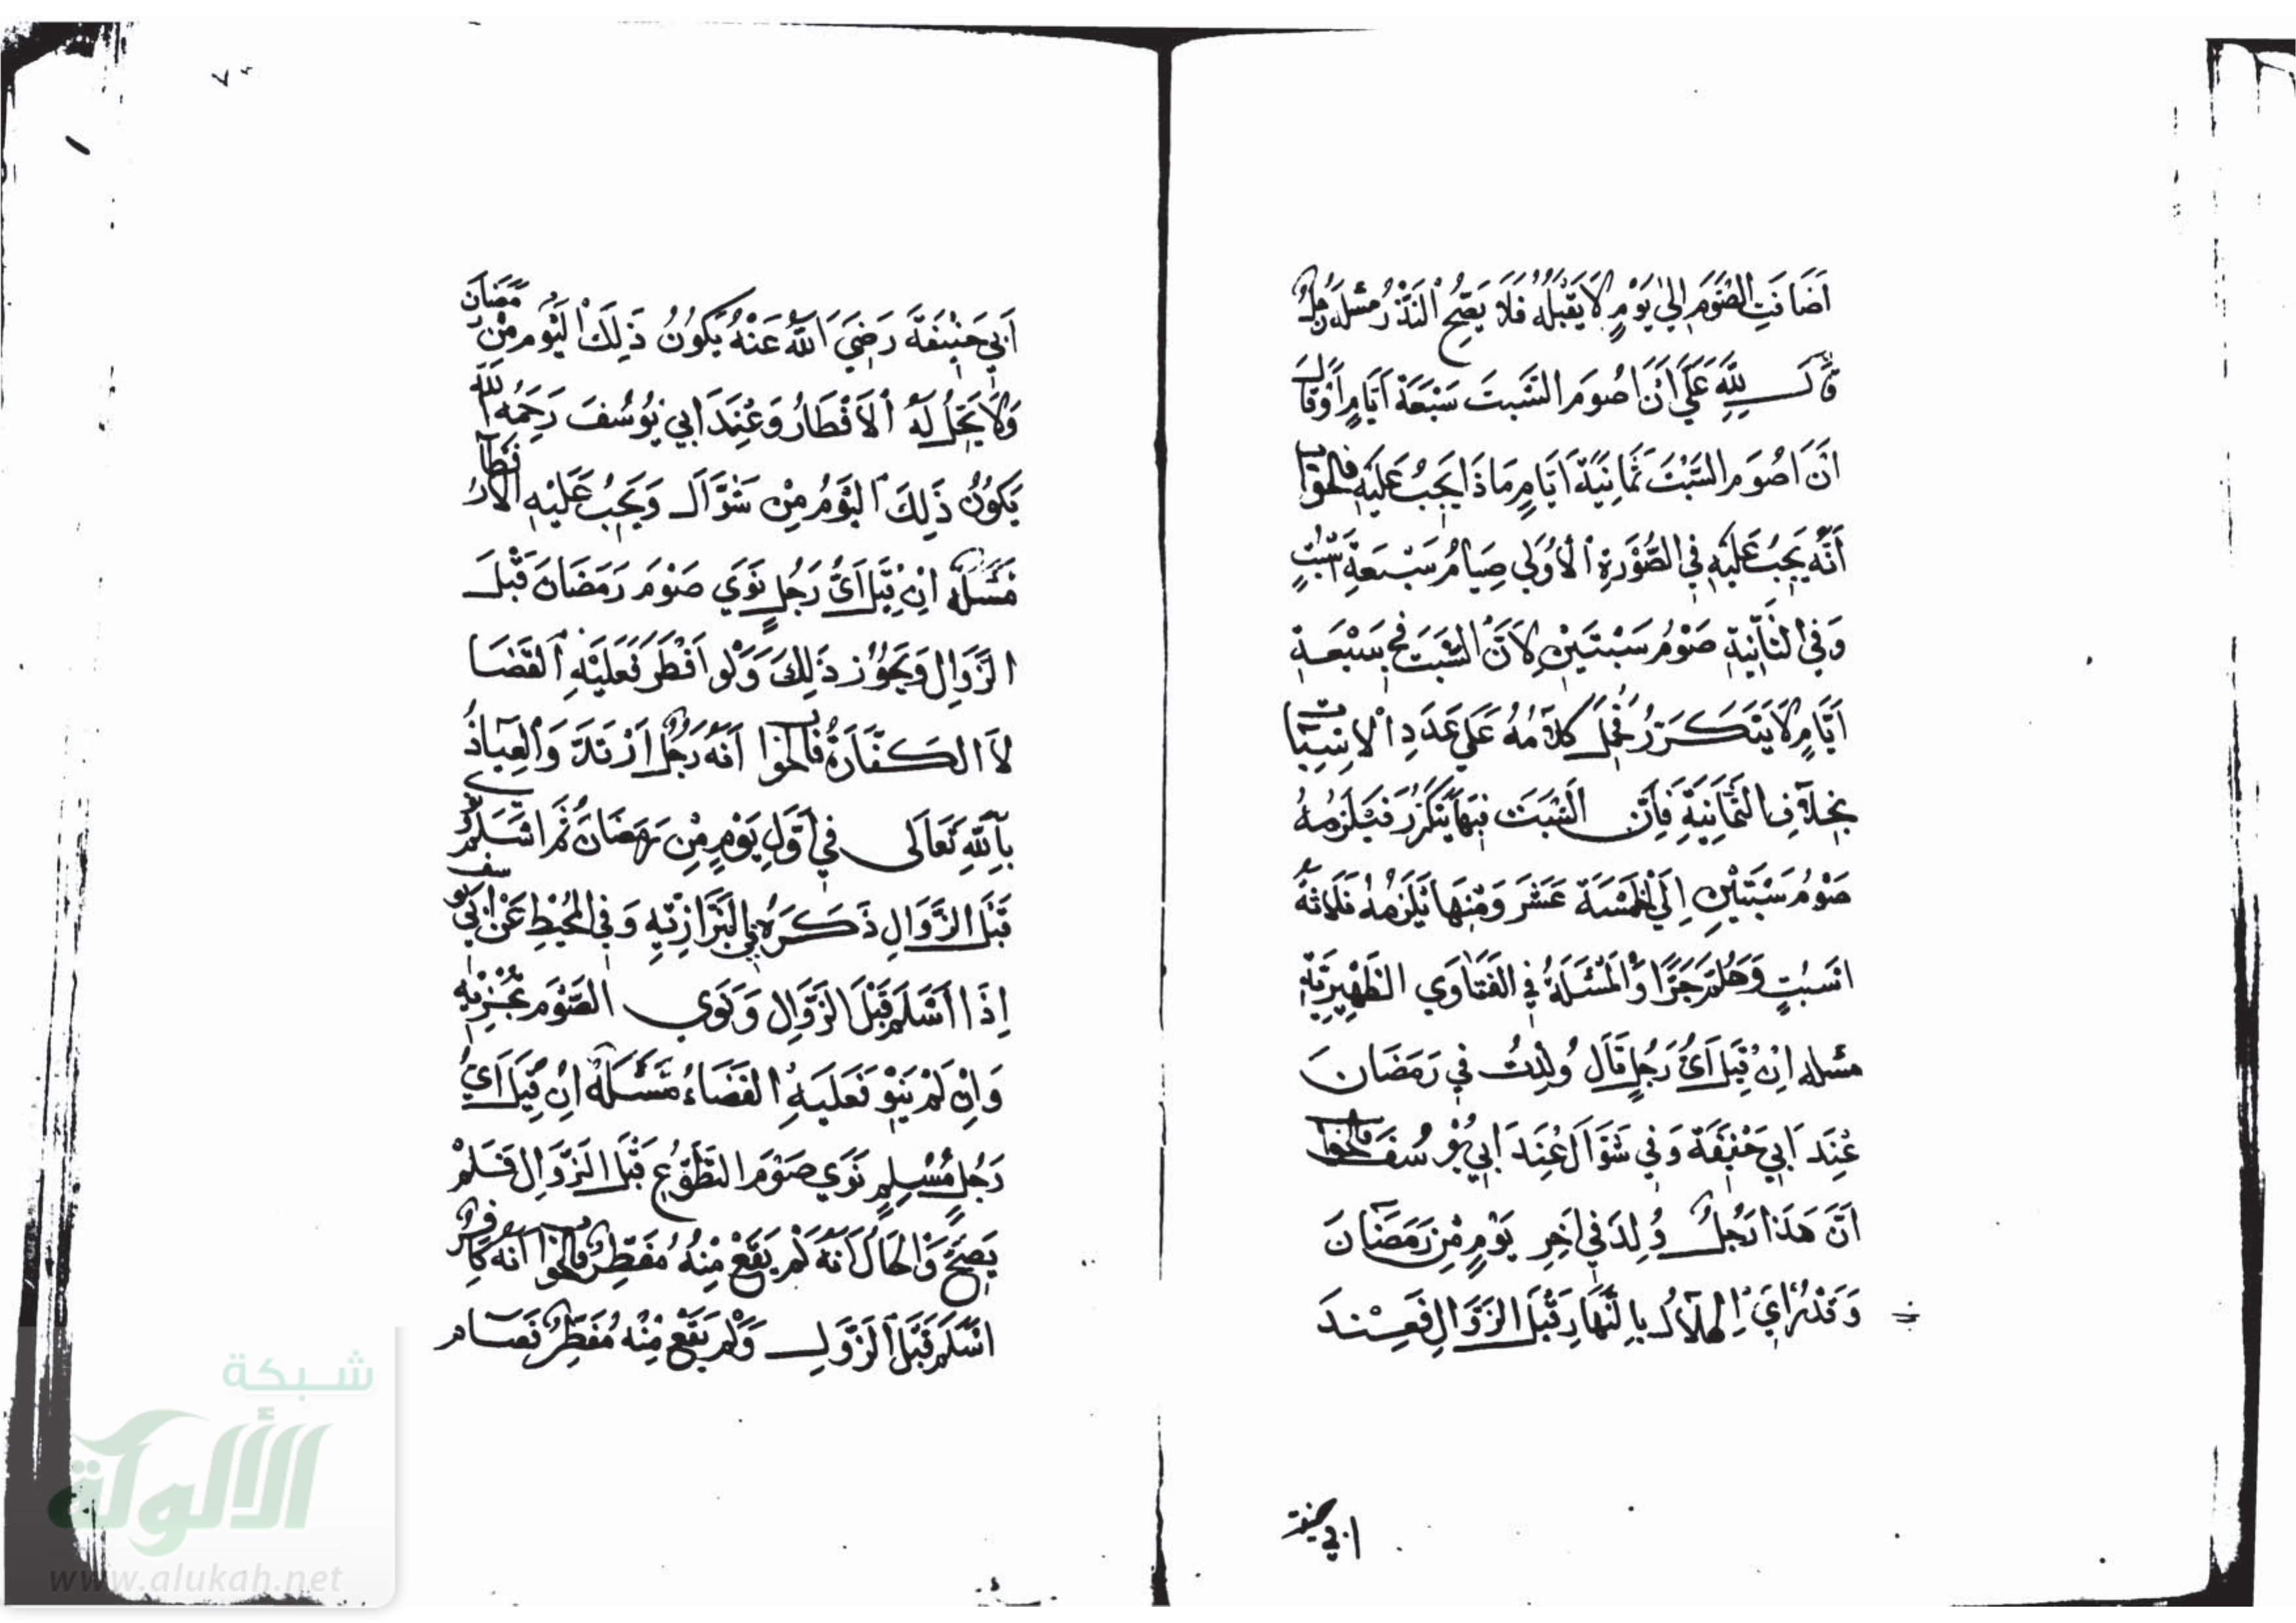 اَضَافَتِ الصَّوْمَ اِلَى يَوْمٍ لَا يَقْبَلُهُ فَلَا يَصِحُّ النَّذْرُ مسئله رَجُلٌ
قَالَ لِلّهِ عَلَيَّ اَنْ اَصُومَ السَّبتَ سَبْعَةَ اَيَّامٍ اَوْ قَالَ
اَنْ اَصُومَ السَّبْتَ ثَمَانِيَةَ اَيَّامٍ مَاذَا يَجِبُ عَلَيْهِ فالجواب
اَنَّهُ يَجِبُ عَلَيْهِ فِي الصُّوْرَةِ الْاُوْلَى صِيَامُ سَبْعَةِ اَسْبُتٍ
وَفِي الثَّانِيَةِ صَوْمُ سَبْتَيْنِ لِاَنَّ السَّبْتَ فِي سَبْعَةِ
اَيَّامٍ لَا يَتَكَرَّرُ فَحُمِلَ كَلَامُهُ عَلَى عَدَدِ الْاَسْبَاتِ
بِخِلَافِ الثَّمَانِيَةِ فَاِنَّ السَّبْتَ فِيهَا يَتَكَرَّرُ فَيَلْزَمُهُ
صَوْمُ سَبْتَيْنِ اِلَى الْخَمْسَةَ عَشَرَ وَمِنْهَا يَلْزَمُهُ ثَلَاثَةُ
اَسْبُتٍ وَهَلُمَّ جَرًّا وَالْمَسْئَلَةُ فِي الْفَتَاوَى الظَّهِيْرِيَّةِ
مسئله اِنْ قِيْلَ اَيُّ رَجُلٍ قَالَ وُلِدْتُ فِي رَمَضَانَ
عِنْدَ اَبِي حَنِيْفَةَ وَفِي شَوَّالٍ عِنْدَ اَبِي يُوْسُفَ فالجواب
اَنَّ هَذَا رَجُلٌ وُلِدَ فِي اَخِرِ يَوْمٍ مِنْ رَمَضَانَ
وَقَدْ رُاِيَ الْهِلَالُ بِالنَّهَارِ قَبْلَ الزَّوَالِ فَعِنْدَ
ابي حنيفة
اَبِي حَنِيْفَةَ رَضِيَ اللّهُ عَنْهُ يَكُوْنُ ذَلِكَ الْيَوْمُ مِنْ رَمَضَانَ
وَلَا يَحِلُّ لَهُ الْاِفْطَارُ وَعِنْدَ اَبِي يُوْسُفَ رَحِمَهُ اللّه
يَكُوْنُ ذَلِكَ الْيَوْمُ مِنْ شَوَّالٍ وَيَجِبُ عَلَيْهِ الْاِفْطَارُ
مَسْئَلَة اِنْ قِيْلَ اَيُّ رَجُلٍ نَوَى صَوْمَ رَمَضَانَ قَبْلَ
الزَّوَالِ وَيَجُوْزُ ذَلِكَ وَلَوْ اَفْطَرَ فَعَلَيْهِ الْقَضَا
لَا الْكَفَّارَةُ فالجواب اَنَّهُ رَجُلٌ ارْتَدَّ وَالْعِيَاذُ
بِاللّهِ تَعَالَى فِي اَوَّلِ يَوْمٍ مِنْ رَمَضَانَ ثُمَّ اَسْلَمَ
قَبْلَ الزَّوَالِ ذَكَرَهُ فِي الْبَزَّازِيَّةِ وَفِي الْمُحِيْطِ عَنْ اَبِي يوسف
اِذَا اَسْلَمَ قَبْلَ الزَّوَالِ وَنَوَى الصَّوْمَ يُجْزِيْهِ
وَاِنْ لَمْ يَنْوِ فَعَلَيْهِ الْقَضَاءُ مَسْئَلَة اِنْ قِيْلَ اَيُّ
رَجُلٍ مُسْلِمٍ نَوَى صَوْمَ التَّطَوُّعِ قَبْلَ الزَّوَالِ فَلَمْ
يَصِحَّ وَالْحَالُ اَنَّهُ لَمْ يَقَعْ مِنْهُ مُفَطِّرٌ فالجواب اَنَّهُ كَافِرٌ
اَسْلَمَ قَبْلَ الزَّوَالِ وَلَمْ يَقَعْ مِنْهُ مُفَطِّرٌ فَصَامَ
شبكة
الألوكة
www.alukah.net